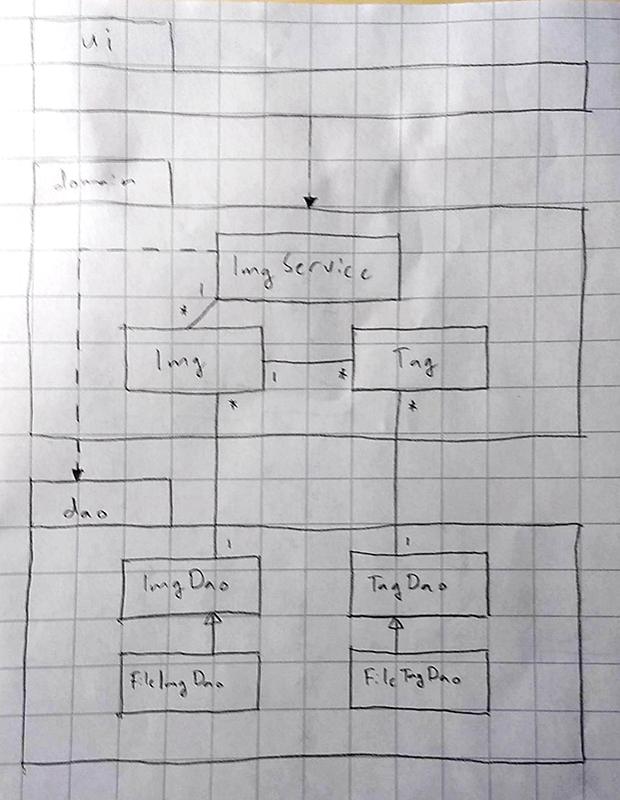 ui
domain
ImgService
1
*
Img
Tag
1
*
*
*
dao
1
1
ImgDao
TagDao
FileImgDao
FileTagDao